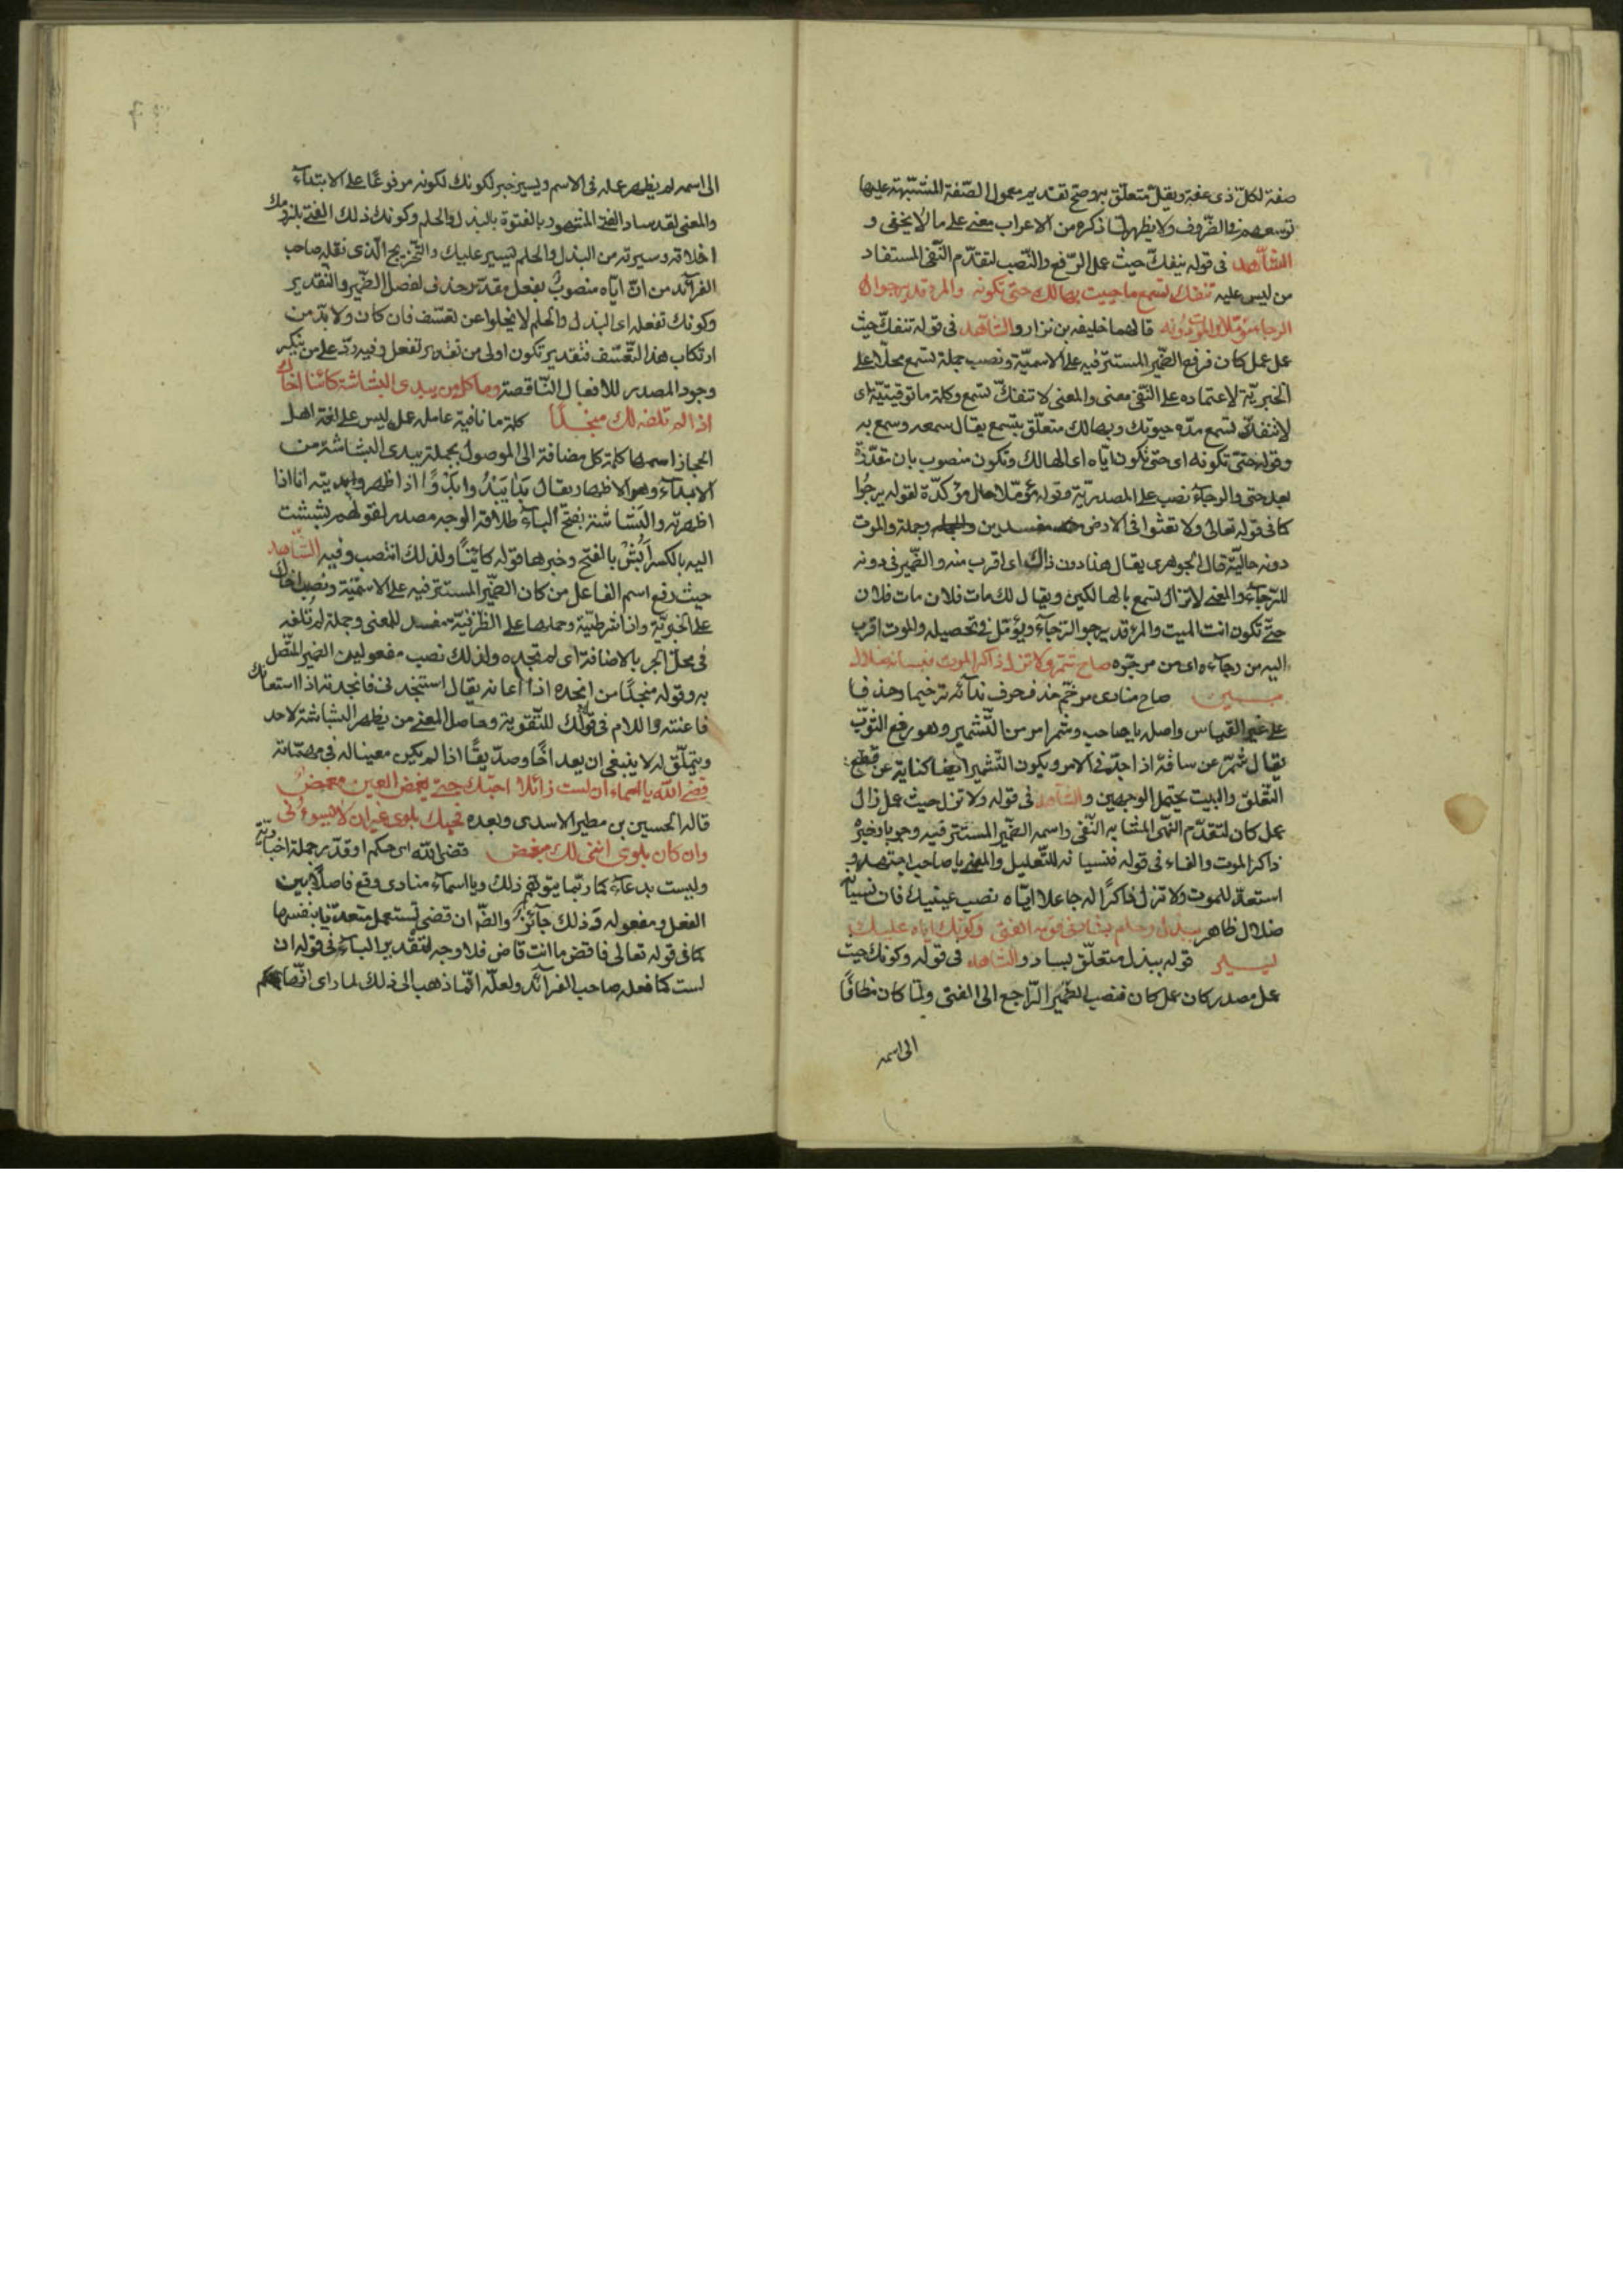 صفة لكلّ ذى عفة ويقلّ متعلّق به وصحّ تقديم معمول الصّفة المشبّهة عليها
توسعهم فى الظّروف ولا يظهر لما ذكره من الاعراب معنى على ما لا يخفى و
الشّاهد فى قوله ينفكّ حيث عمل الرّفع والنّصب لتقدّم النّفى المستفاد
من ليس عليه تنفكّ تسمع ما حييت بهالك حتى تكونه والمرء قد يرجو ا
الرجاء مؤمّلا والموت دونه قالهما خليفه بن نزار والشّاهد فى قوله تنفكّ حيث
عمل عمل كان فرفع الضّمير المستتر فيه على الاسميّة ونصب جملة تسمع محلّا على
الخبريّة لاعتماده على النّفى معنى والمعنى لا تنفكّ تسمع وكلمة ما توقيتيّة اى
لا تنفكّ تسمع مدّه حيوتك وبهالك متعلّق بتسمع يقال سمعه وسمع به
وقوله حتىّ تكونه اى حتى تكون ايّاه اى الهالك وتكون منصوب بان مقدّرة
بعد حتى والرجآء نصب على المصدريّة وقوله مؤمّلا حال مؤكدّة لقوله يرجُوا
كما فى قوله تعالى ولا تعثوا فى الارض مفسدين وجملة والموت
دونه حاليّة قال الجوهرى يقال هذا دون ذاك اى اقرب منه والضّمير فى دونه
للرّجآء والمعنى لا تزال تسمع بالهالكين ويقال لك مات فلان مات فلان
حتّى تكون انت الميت والمرء قد يرجو الرّجآء ويؤمّل فى تحصيله والموت اقرب
اليه من رجآءه اى من مرجوّه صاح شمّر ولا تزل ذاكر الموت فنسيانه ضلال
مبين صاح منادى مرخّم حذف حرف ندآئه ترخيما وحذفا
على غير القياس واصله يا صاحب وشمّر امر من التّشمير وهو رفع الثّوب
يقال شمّر عن ساقه اذا جدّ فى الامر ويكون التّشمير ايضا كناية عن قطع
التّعلق والبيت يحتمل الوجهين والشّاهد فى قوله ولا تزل حيث عمل زال
عمل كان لتقدّم النّهى المشابه النّفى واسمه الضّمير المستتر فيه وجوبا وخبره
ذاكر الموت والفاء فى قوله فنسيانه للتّعليل والمعنى يا صاحب اجتهد و
استعدّ للموت ولا تزل ذاكرًا له جاعلا ايّاه نصب عينيك فان نسيانه
ضلال ظاهر ببذل وحلم ساد فى قومه الفتى وكونك ايّاه عليك
يسير قوله ببذل متعلّق بساد والشّاهد فى قوله وكونك حيث
عمل مصدر كان عمل كان فنصب الضّمير الرّاجع الى الفتى ولمّا كان مضافًا
الى اسمه
الى اسمه لم يظهر عمله فى الاسم ويسير خبر لكونك لكونه مرفوعًا على الابتدآء
والمعنى لقد ساد الفتى المشهود بالفتوة بالبذل والحلم وكونك ذلك الفتى يلزمك
اخلاقه وسيرته من البذل والحلم يسير عليك والتّخريج الّذى نقله صاحب
الفرآئد من انّ ايّاه منصوبٌ بفعل مقدّر حذف لفصل الضّمير والتّقدير
وكونك تفعله اى البذل والحلم لا يخلوا عن تعسّف فان كان ولا بدّ من
ارتكاب هذا التّعسّف فتقدير تكون اولى من تقدير تفعل وفيه ردّ على من ينكر
وجود المصدر للافعال النّاقصة وما كل من يبدى البشاشة كائنا اخاك
اذا لم تلفه لك منجدًا كلمة ما نافية عامله عمل ليس على لغة اهل
الحجاز اسمها كلمة كل مضافة الى الموصول بجملة يبدى البشاشة من
الابدآء وهو الاظهار يقال بدا يبدُ وابدُوًّا اذا ظهر وابديته انا اذا
اظهرته والبشاشة بفتح البآء طلاقة الوجه مصدر لقولهم بششت
اليه بالكسر اَبَشُّ بالفتح وخبرها قوله كائنًا ولذلك انتصب وفيه الشّاهد
حيث رفع اسم الفاعل من كان الضّمير المستتر فيه على الاسميّة ونصب اخاك
على الخبريّة واذا شرطيّة وحملها على الظّرفيّة مفسد للمعنى وجملة لم تلفه
فى محلّ الجر بالاضافة اى لم تجده ولذلك نصب مفعولين الضمير المتّصل
به وقوله منجدًا من انجده اذا اعانه يقال استنجد نى فانجدته اذا استعانك
فاعنته واللام فى قوله لك للتّقوية وحاصل المعنى من يظهر البشاشة لاحد
ويتملّق له لا ينبغى ان يعد اخًا وصدّيقًا اذا لم يكن معينا له فى مهمّاته
قضى اللّه يا اسماء ان لست زائلا احبّك حتى يغمض العين مغمضُ
قاله الحسين بن مطير الاسدى وبعده فحبّك بلوى غير ان لا يسوءنى
وان كان بلوى اننى لك مبغض قضى اللّه اى حكم او قدّر جملة اخباريّة
وليست بدعآء كما ربّما يتوهّم ذلك ويا اسمآء منادى وقع فاصلا بين
الفعل ومفعوله وذلك جآئز والظّ ان قضى تستعمل متعدّيا بنفسها
كما فى قوله تعالى فاقض ما انت قاض فلا وجه لتقدير البآء فى قوله ان
لست كما فعله صاحب الفرآئد ولعلّه انّما ذهب الى ذلك لما راى